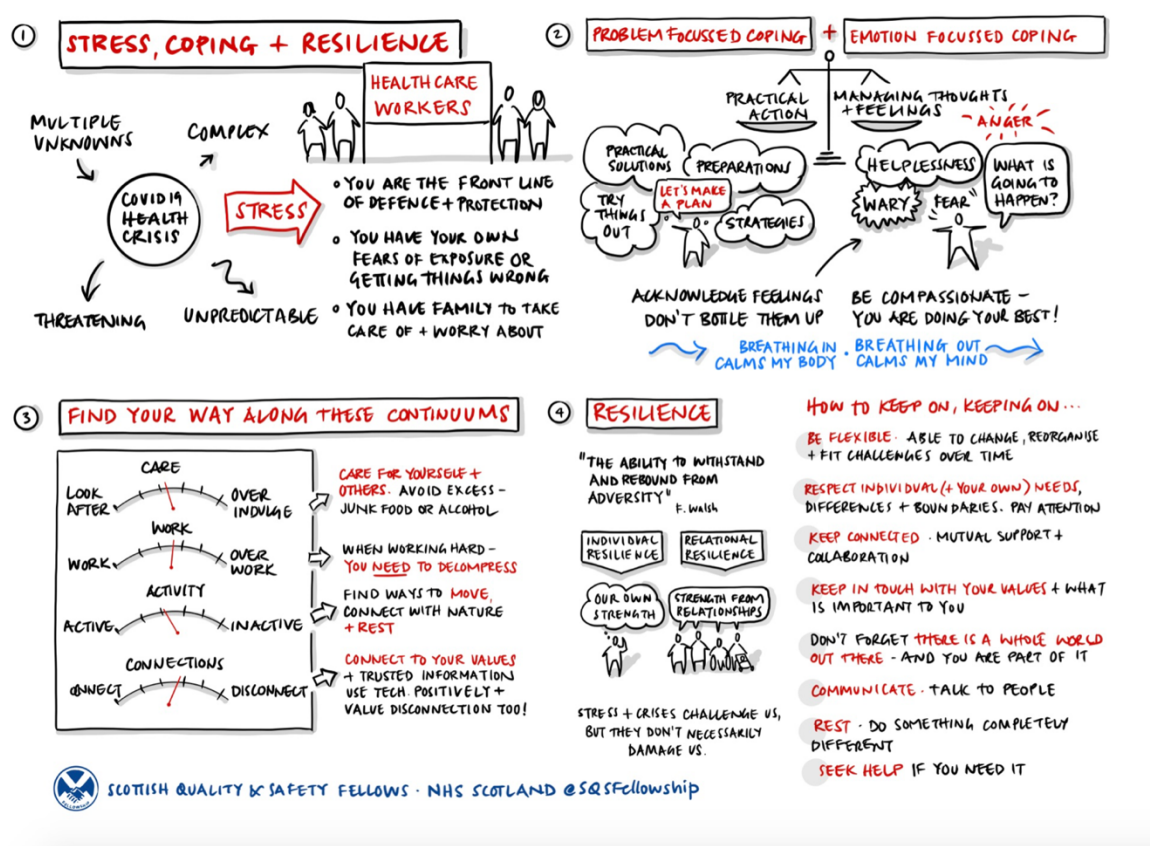 1
STRESS, COPING + RESILIENCE
HEALTHCARE
WORKERS
MULTIPLE
UNKNOWNS
COMPLEX
COVID19
HEALTH
CRISIS
STRESS
THREATENING
UNPREDICTABLE
YOU ARE THE FRONT LINE
OF DEFENCE + PROTECTION
YOU HAVE YOUR OWN
FEARS OF EXPOSURE OR
GETTING THINGS WRONG
YOU HAVE FAMILY TO TAKE
CARE OF + WORRY ABOUT
2
PROBLEM FOCUSSED COPING + EMOTION FOCUSSED COPING
PRACTICAL
ACTION
MANAGING THOUGHTS
+ FEELINGS
PRACTICAL
SOLUTIONS
PREPARATIONS
LET'S MAKE
A PLAN
TRY
THINGS
OUT
STRATEGIES
ANGER
HELPLESSNESS
WARY
FEAR
WHAT IS
GOING TO
HAPPEN?
ACKNOWLEDGE FEELINGS
DON'T BOTTLE THEM UP
BE COMPASSIONATE -
YOU ARE DOING YOUR BEST!
BREATHING IN
CALMS MY BODY
· BREATHING OUT
CALMS MY MIND
3
FIND YOUR WAY ALONG THESE CONTINUUMS
CARE
LOOK
AFTER
OVER
INDULGE
CARE FOR YOURSELF +
OTHERS. AVOID EXCESS -
JUNK FOOD OR ALCOHOL
WORK
WORK
OVER
WORK
WHEN WORKING HARD -
YOU NEED TO DECOMPRESS
ACTIVITY
ACTIVE
INACTIVE
FIND WAYS TO MOVE,
CONNECT WITH NATURE
+ REST
CONNECTIONS
ONNECT
DISCONNECT
CONNECT TO YOUR VALUES
+ TRUSTED INFORMATION
USE TECH. POSITIVELY +
VALUE DISCONNECTION TOO!
4
RESILIENCE
"THE ABILITY TO WITHSTAND
AND REBOUND FROM
ADVERSITY"
F. Walsh
INDIVIDUAL
RESILIENCE
RELATIONAL
RESILIENCE
OUR OWN
STRENGTH
STRENGTH FROM
RELATIONSHIPS
STRESS + CRISES CHALLENGE US,
BUT THEY DON'T NECESSARILY
DAMAGE US.
HOW TO KEEP ON, KEEPING ON...
BE FLEXIBLE · ABLE TO CHANGE, REORGANISE
+ FIT CHALLENGES OVER TIME
RESPECT INDIVIDUAL (+ YOUR OWN) NEEDS,
DIFFERENCES + BOUNDARIES. PAY ATTENTION
KEEP CONNECTED · MUTUAL SUPPORT +
COLLABORATION
KEEP IN TOUCH WITH YOUR VALUES + WHAT
IS IMPORTANT TO YOU
DON'T FORGET THERE IS A WHOLE WORLD
OUT THERE - AND YOU ARE PART OF IT
COMMUNICATE · TALK TO PEOPLE
REST · DO SOMETHING COMPLETELY
DIFFERENT
SEEK HELP IF YOU NEED IT
SCOTTISH QUALITY & SAFETY FELLOWS · NHS SCOTLAND @SQSFellowship